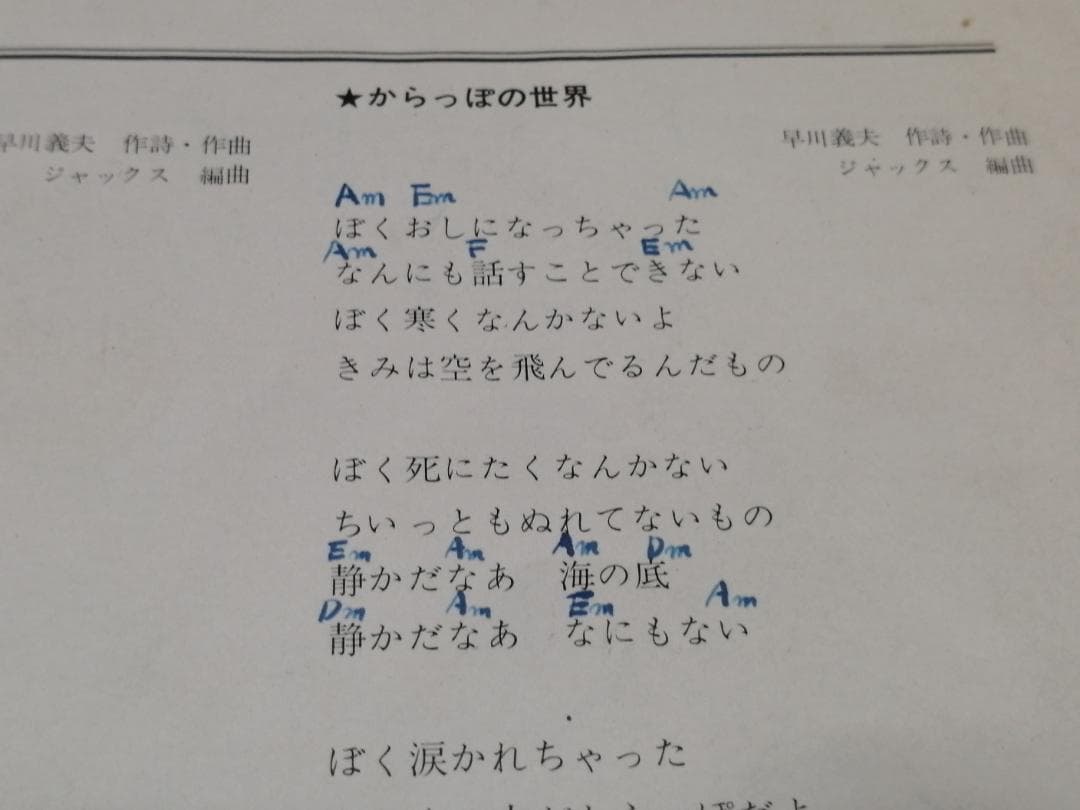 ★からっぽの世界
早川義夫 作詩・作曲
ジャックス 編曲
早川義夫 作詩・作曲
ジャックス 編曲
Am Em Am
ぼくおしになっちゃった
Am F Em
なんにも話すことできない
ぼく寒くなんかないよ
きみは空を飛んでるんだもの
ぼく死にたくなんかない
ちいっともぬれてないもの
Em Am Am Dm
静かだなあ 海の底
Dm Am Em Am
静かだなあ なにもない
ぼく涙かれちゃった